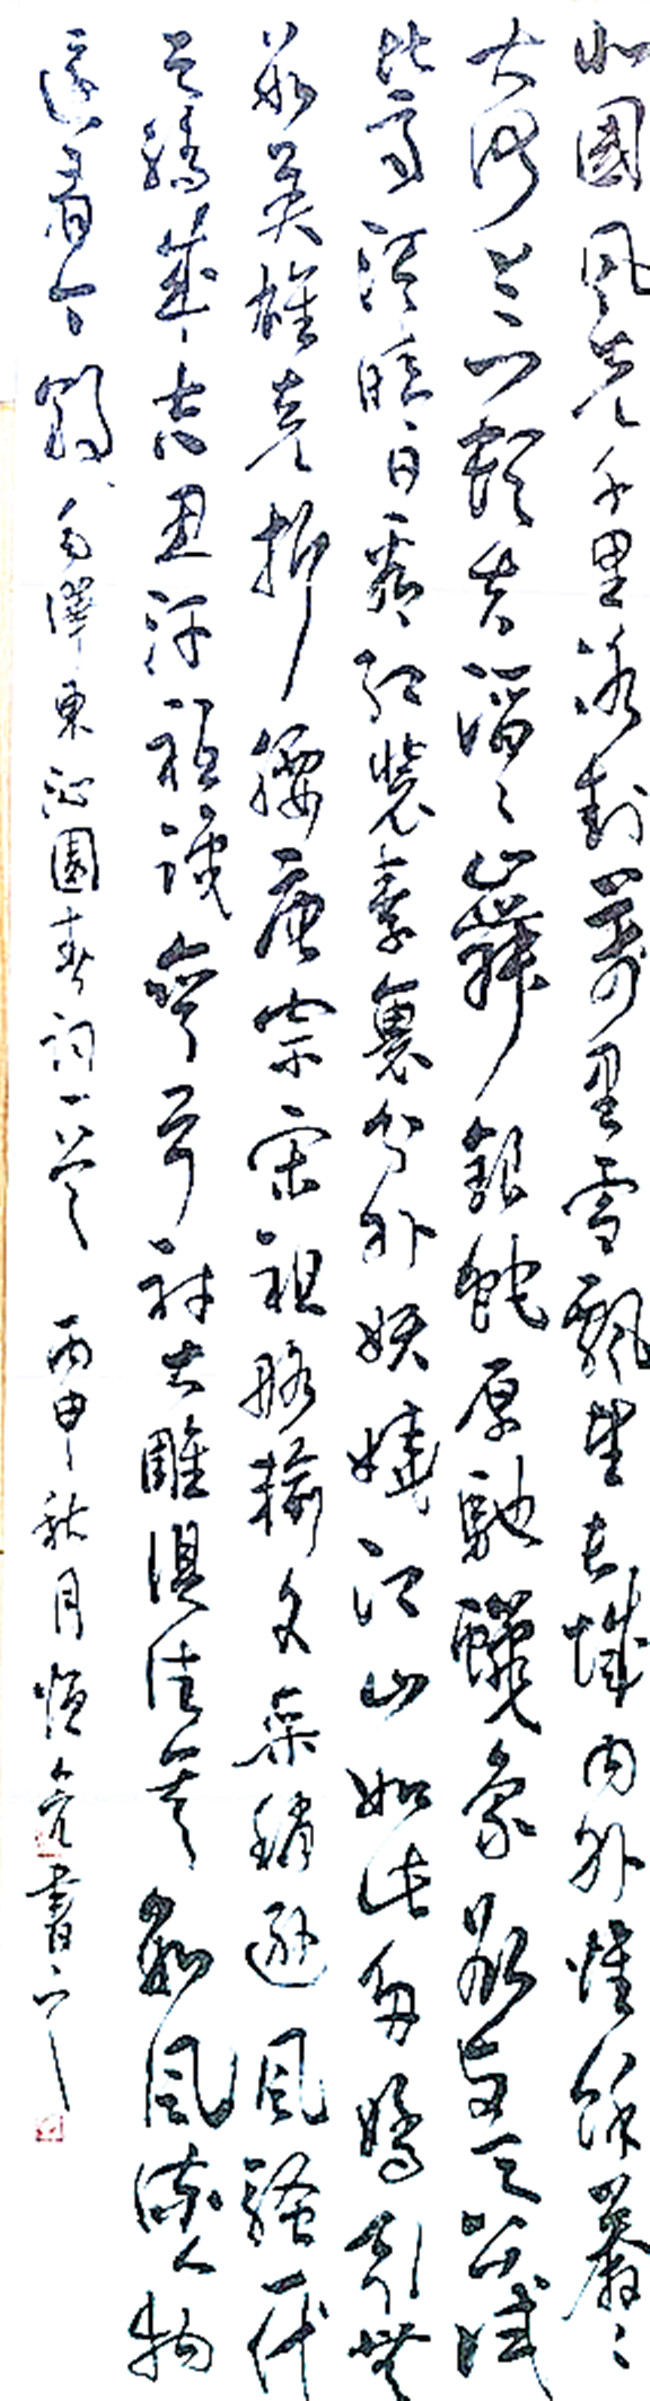 北國風光千里冰封萬里雪飄望長城內外惟餘莽〻
大河上下頓失滔〻山舞銀蛇原馳蠟象欲與天公試
比高須晴日看紅裝素裹分外妖嬈江山如此多嬌引無
數英雄競折腰唐宗宋祖略輸文采稍遜風騷一代
天驕成吉思汗祇識彎弓射大雕俱往矣數風流人物
還看今朝 毛澤東沁園春詞一首 丙申秋月 書